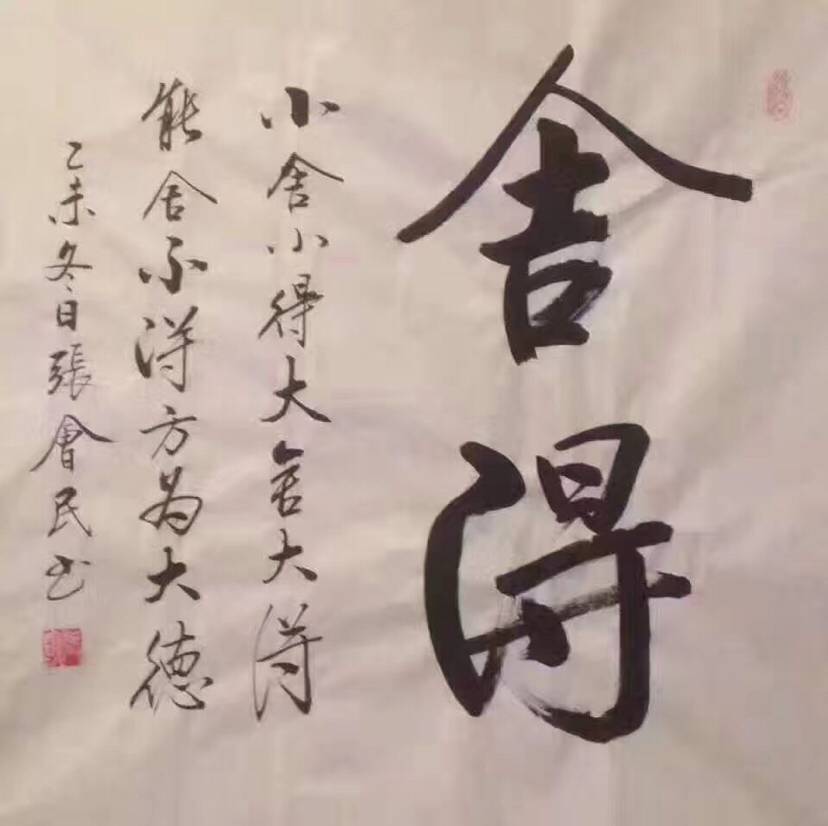 舍得
小舍小得大舍大得
能舍不得方为大德
乙未冬日張會民书